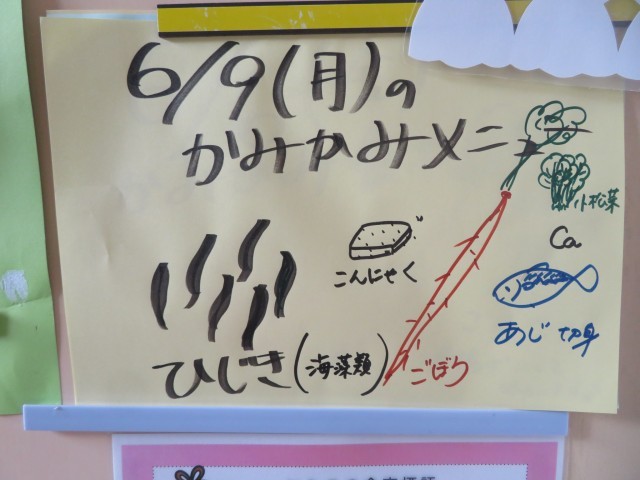 6/9(月)の
かみかみメニュー
小松菜
Ca
こんにゃく
あじ 切身
ひじき(海藻類)
ごぼう